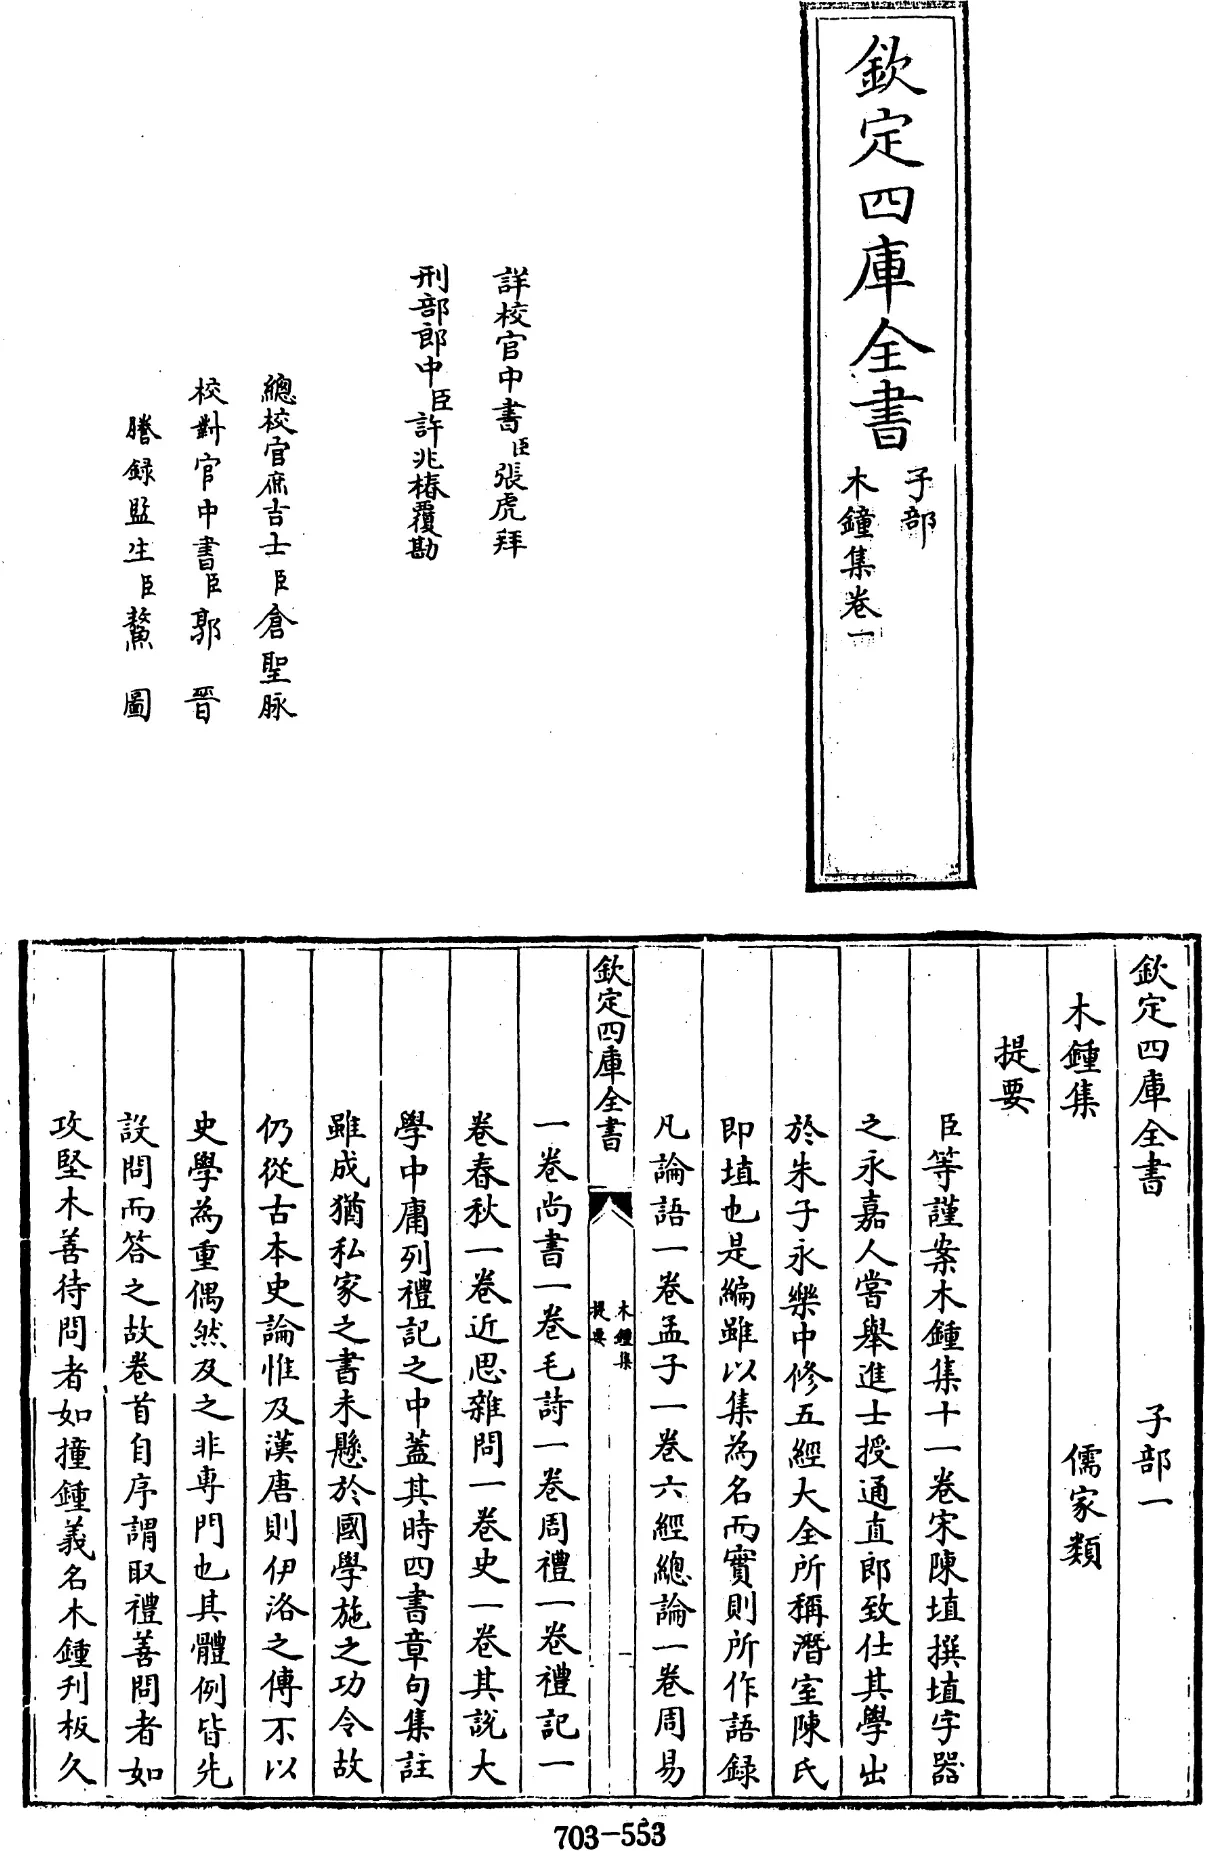 欽定四庫全書
子部
木鐘集卷一
詳校官中書臣張虎拜
刑部郎中臣許兆椿覆勘
總校官庶吉士臣倉聖脉
校對官中書臣郭晉
謄錄監生臣鰲圖
欽定四庫全書 子部一
木鍾集 儒家類
提要
臣等謹案木鍾集十一卷宋陳埴撰埴字器
之永嘉人嘗舉進士授通直郎致仕其學出
於朱子永樂中修五經大全所稱潛室陳氏
即埴也是編雖以集為名而實則所作語錄
凡論語一卷孟子一卷六經總論一卷周易
欽定四庫全書
木鍾集
提要
一
一卷尚書一卷毛詩一卷周禮一卷禮記一
卷春秋一卷近思雜問一卷史一卷其說大
學中庸列禮記之中蓋其時四書章句集註
雖成猶私家之書未懸於國學施之功令故
仍從古本史論惟及漢唐則伊洛之傳不以
史學為重偶然及之非專門也其體例皆先
設問而答之故卷首自序謂取禮善問者如
攻堅木善待問者如撞鍾義名木鍾刋板久
703-553